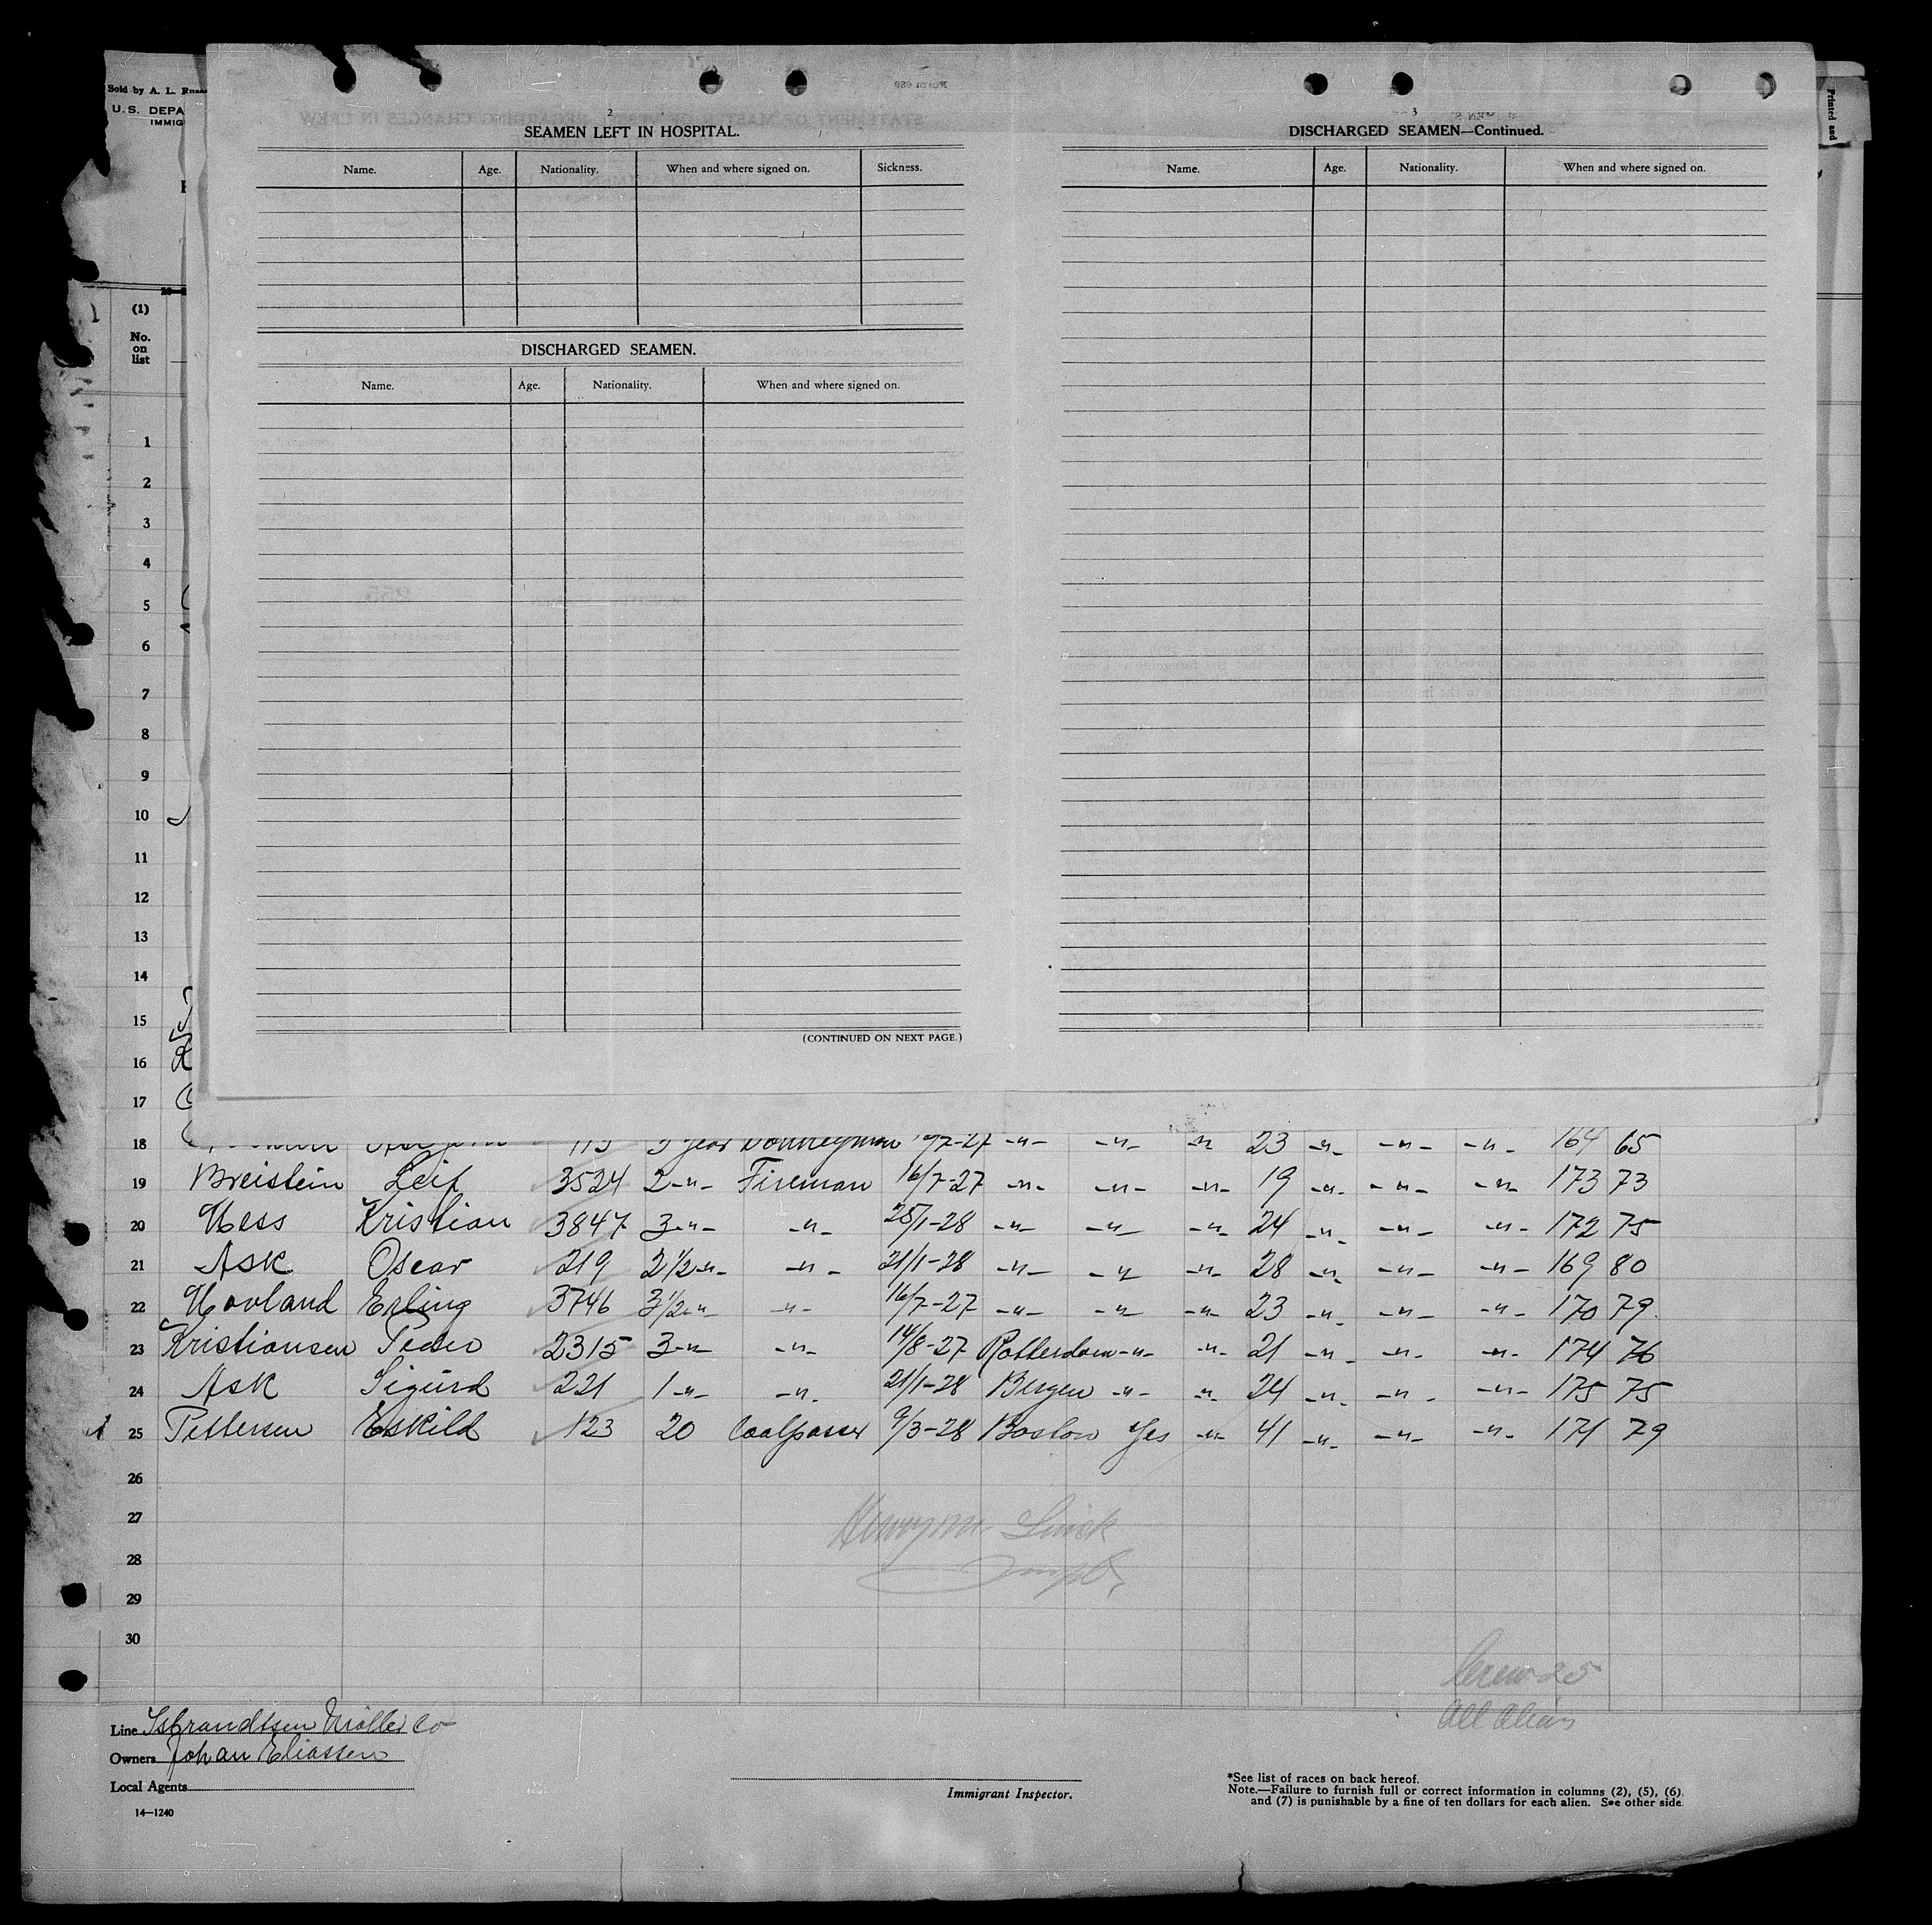 Sold by A. L.
U. S. DEPA
IMMIG
Printed and
2
SEAMEN LEFT IN HOSPITAL.
Name. Age. Nationality. When and where signed on. Sickness.
DISCHARGED SEAMEN.
Name. Age. Nationality. When and where signed on.
(CONTINUED ON NEXT PAGE.)
3
DISCHARGED SEAMEN—Continued.
Name. Age. Nationality. When and where signed on.
(1)
No.
on
list
1
2
3
4
5
6
7
8
9
10
11
12
13
14
15
16
17
18 23 -"- -"- -"- 164 65
19 Breistein Leif 3524 2 -"- Fireman 16/7-27 -"- -"- -"- 19 -"- -"- -"- 173 73
20 Hess Kristian 3847 3 -"- -"- 25/1-28 -"- -"- -"- 24 -"- -"- -"- 172 75
21 Ask Oscar 219 2 1/2 -"- -"- 21/1-28 -"- -"- -"- 28 -"- -"- -"- 169 80
22 Hovland Erling 3746 3 1/2 -"- -"- 16/7-27 -"- -"- -"- 23 -"- -"- -"- 170 79
23 Kristiansen Peder 2315 3 -"- -"- 14/8-27 Rotterdam -"- -"- 21 -"- -"- -"- 174 76
24 Ask Sigurd 221 1 -"- -"- 21/1-28 Bergen -"- -"- 24 -"- -"- -"- 175 75
25 Pettersen Eskild 123 20 Coalpasser 9/3-28 Boston Yes -"- 41 -"- -"- -"- 171 79
26
27
28
29
30
Crew 25
All Alien
Line Isbrandtsen Möller Co
Owners Johan Eliassen
Local Agents
14—1240
Immigrant Inspector.
*See list of races on back hereof.
Note.—Failure to furnish full or correct information in columns (2), (5), (6)
and (7) is punishable by a fine of ten dollars for each alien. See other side.